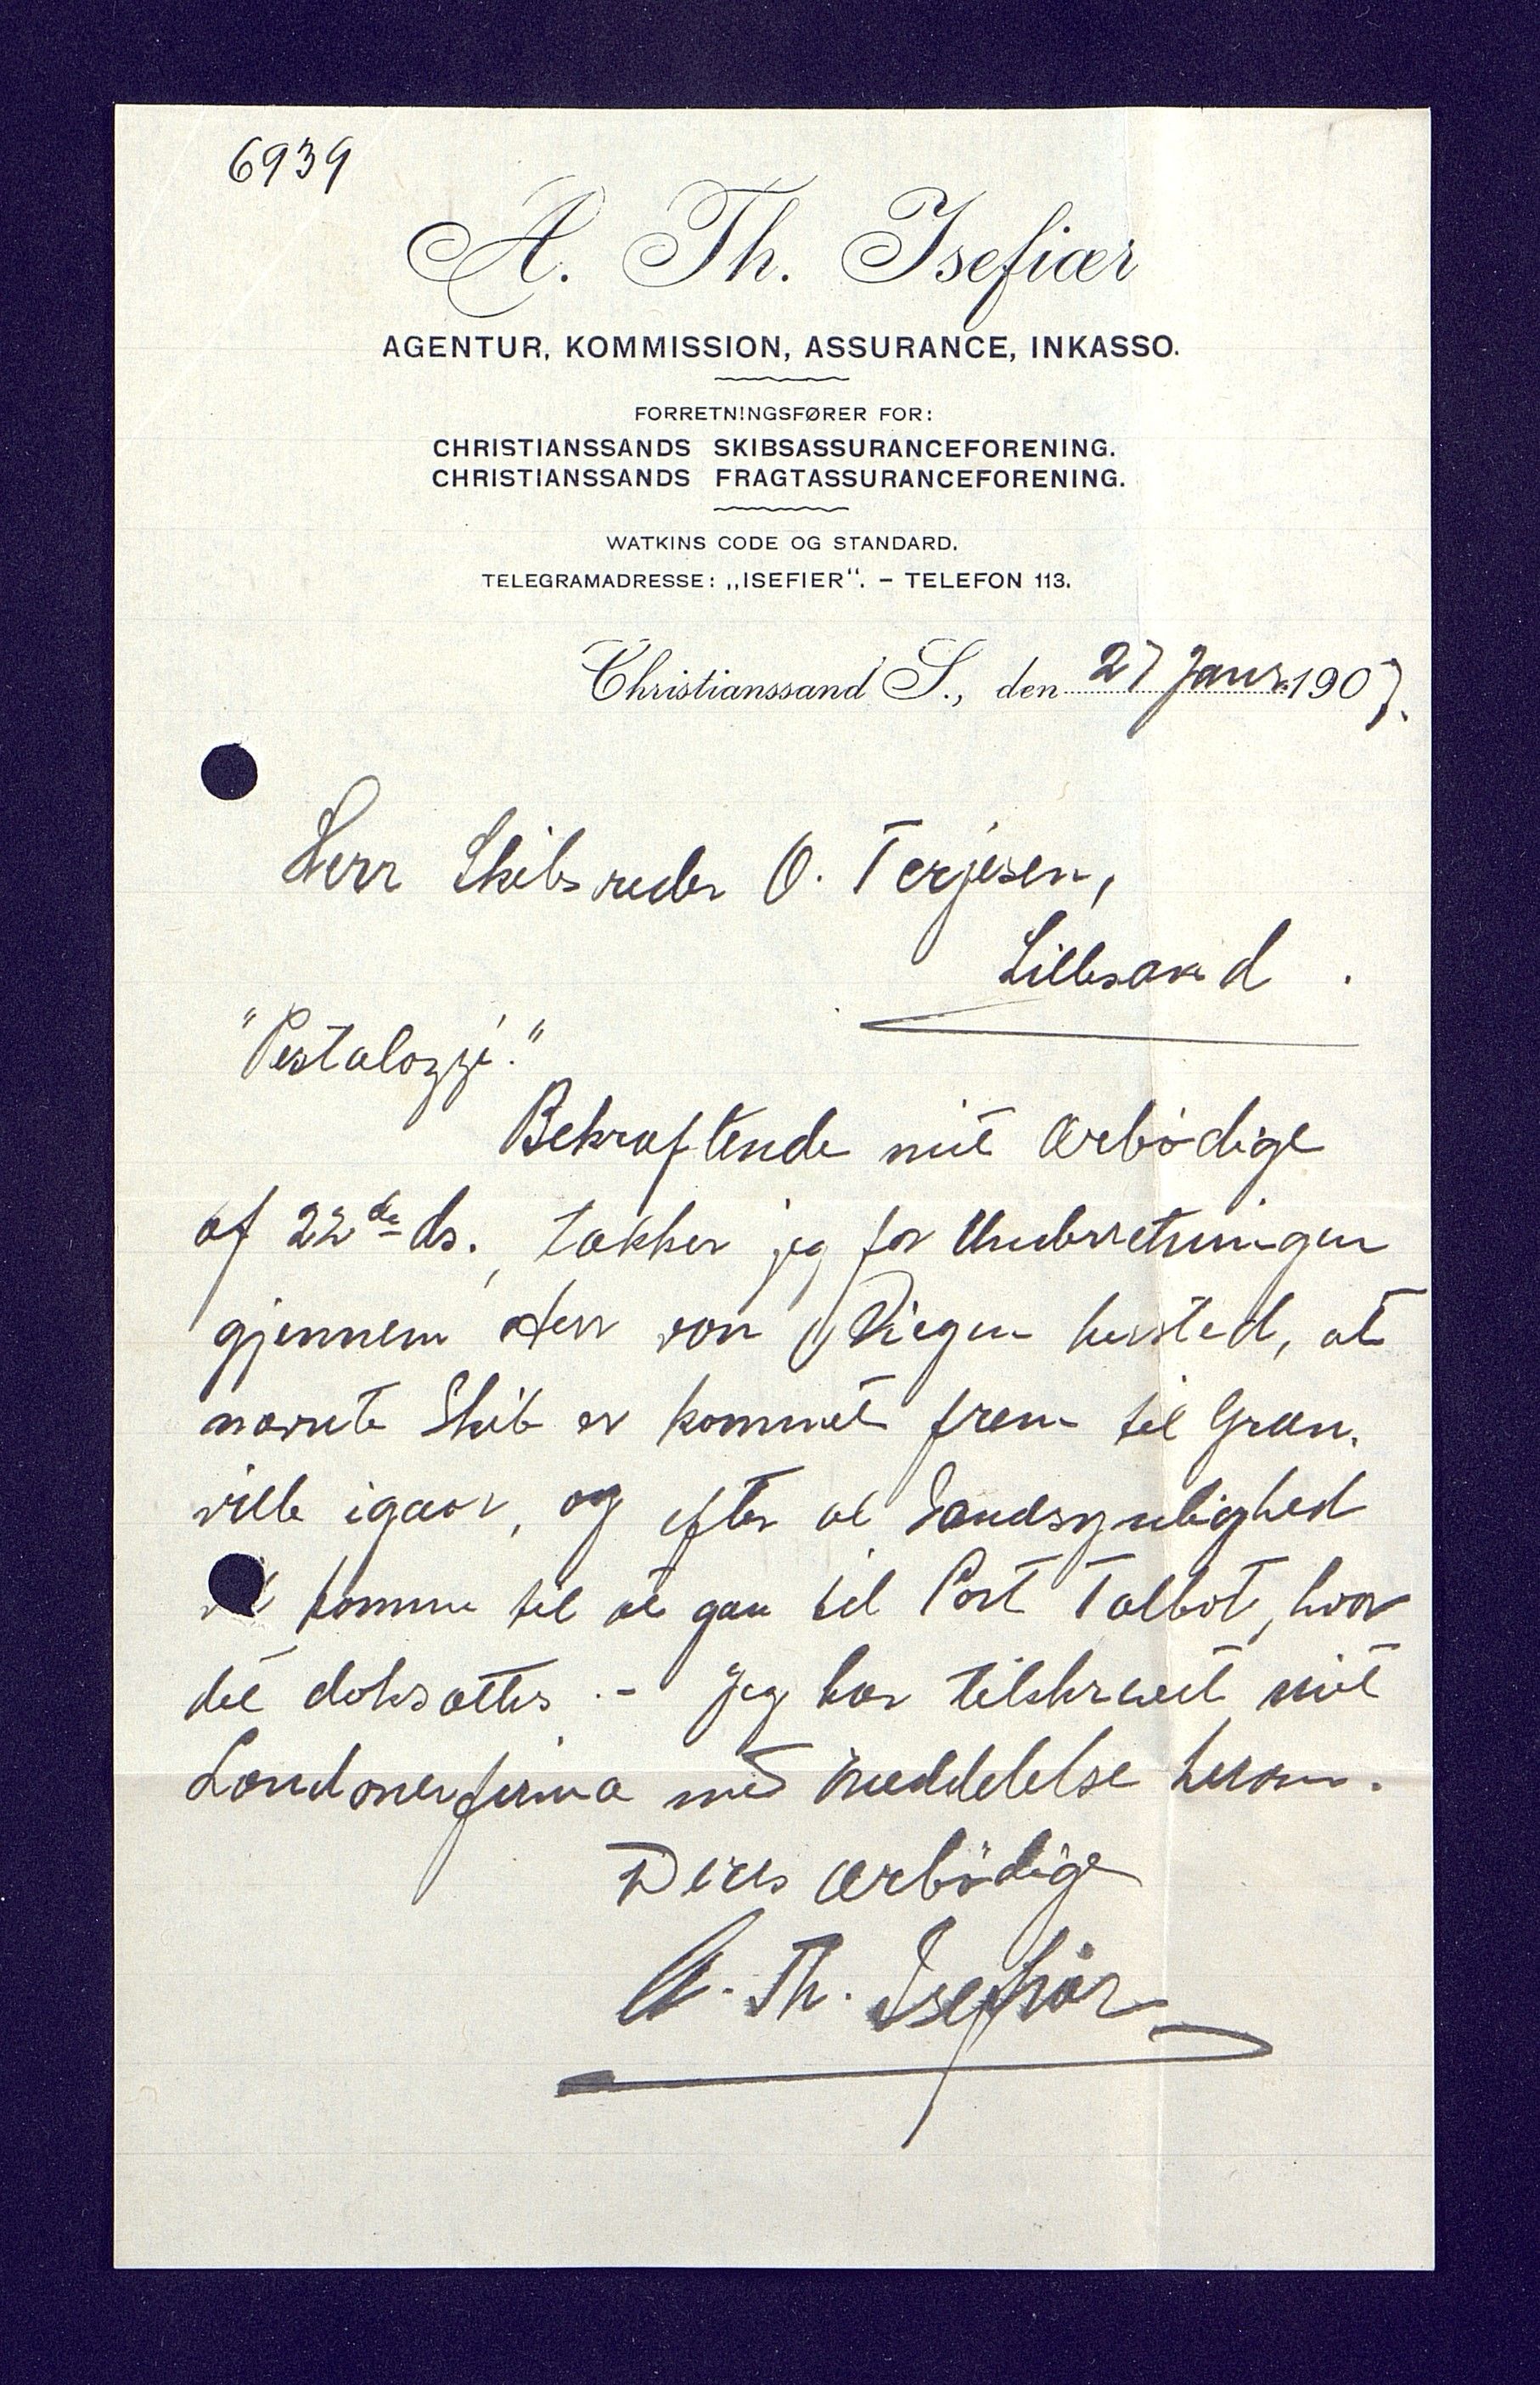 6939
A. Th. Isefiær
AGENTUR, KOMMISSION, ASSURANCE, INKASSO.
FORRETNINGSFØRER FOR:
CHRISTIANSSANDS SKIBSASSURANCEFORENING.
CHRISTIANSSANDS FRAGTASSURANCEFORENING.
WATKINS CODE OG STANDARD.
TELEGRAMADRESSE: „ISEFIER“. – TELEFON 113.
Christianssand S., den 27 Janr. 1907.
Herr Skibsreder O. Terjesen,
Lillesand.
"Pestalozzi."
Bekræftende mit ærbødige
af 22de ds., takker jeg for Underretningen
gjennem Herr von hersted, at
nævnte Skib er kommet frem til Gran-
ville igaar, og efter al Sandsynlighed
vil komme til at gaa til Port Talbot, hvor
det doksættes. – Jeg har tilskrevet mit
Londonerfirma med Meddelelse herom.
Deres ærbødige
A. Th. Isefiær